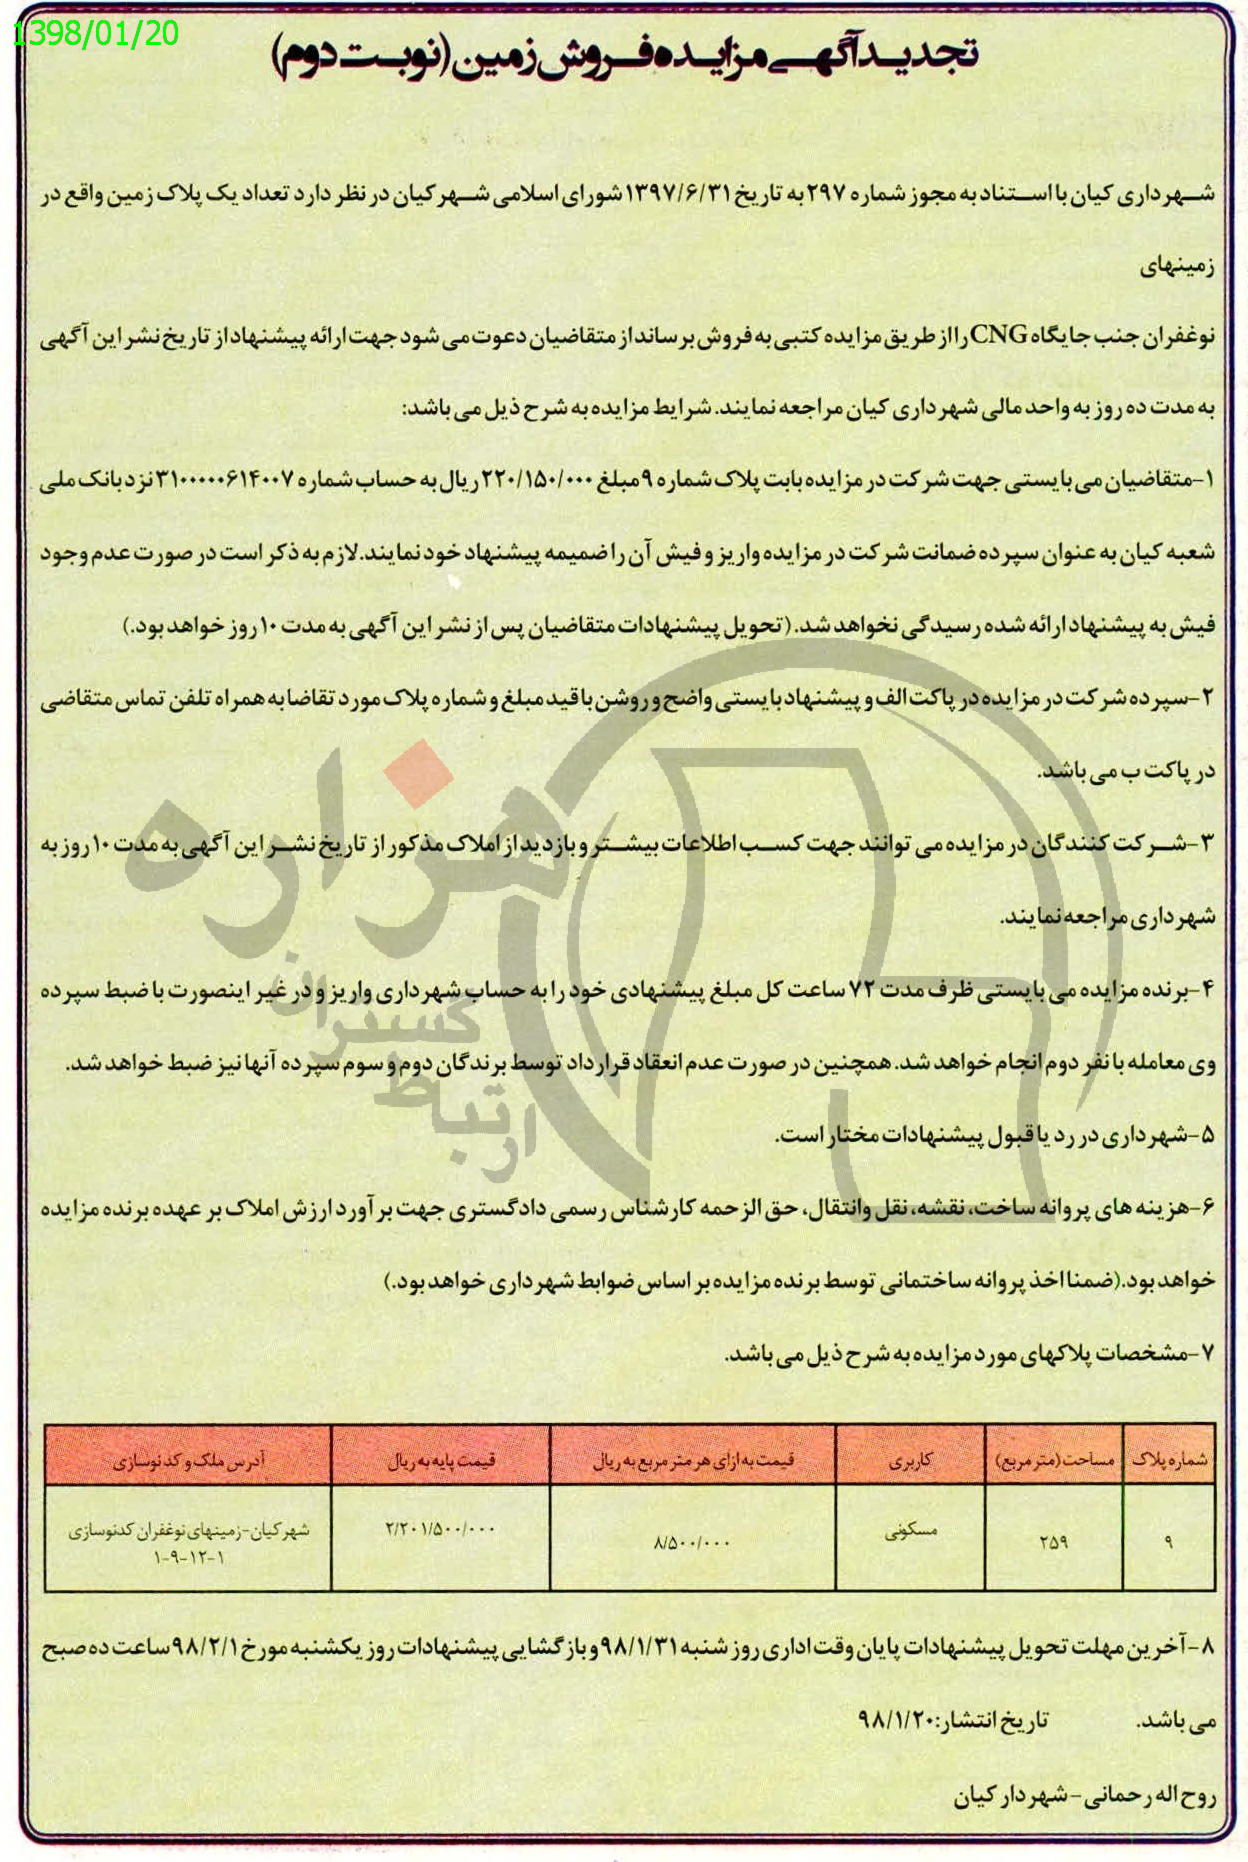 1398/01/20
تجدید آگهی مزایده فروش زمین (نوبت دوم)
شهرداری کیان با استناد به مجوز شماره ۲۹۷ به تاریخ ۱۳۹۷/۶/۳۱ شورای اسلامی شهر کیان در نظر دارد تعداد یک پلاک زمین واقع در
زمینهای
نوغفران جنب جایگاه CNG را از طریق مزایده کتبی به فروش برساند از متقاضیان دعوت می شود جهت ارائه پیشنهاد از تاریخ نشر این آگهی
به مدت ده روز به واحد مالی شهرداری کیان مراجعه نمایند. شرایط مزایده به شرح ذیل می باشد:
۱-متقاضیان می بایستی جهت شرکت در مزایده بابت پلاک شماره ۹ مبلغ ۲۲۰/۱۵۰/۰۰۰ ریال به حساب شماره ۳۱۰۰۰۰۰۶۱۴۰۰۷ نزد بانک ملی
شعبه کیان به عنوان سپرده ضمانت شرکت در مزایده واریز و فیش آن را ضمیمه پیشنهاد خود نمایند. لازم به ذکر است در صورت عدم وجود
فیش به پیشنهاد ارائه شده رسیدگی نخواهد شد. (تحویل پیشنهادات متقاضیان پس از نشر این آگهی به مدت ۱۰ روز خواهد بود.)
۲-سپرده شرکت در مزایده در پاکت الف و پیشنهاد بایستی واضح و روشن با قید مبلغ و شماره پلاک مورد تقاضا به همراه تلفن تماس متقاضی
در پاکت ب می باشد.
۳-شرکت کنندگان در مزایده می توانند جهت کسب اطلاعات بیشتر و بازدید از املاک مذکور از تاریخ نشر این آگهی به مدت ۱۰ روز به
شهرداری مراجعه نمایند.
۴-برنده مزایده می بایستی ظرف مدت ۷۲ ساعت کل مبلغ پیشنهادی خود را به حساب شهرداری واریز و در غیر اینصورت با ضبط سپرده
وی معامله با نفر دوم انجام خواهد شد. همچنین در صورت عدم انعقاد قرارداد توسط برندگان دوم و سوم سپرده آنها نیز ضبط خواهد شد.
۵-شهرداری در رد یا قبول پیشنهادات مختار است.
۶-هزینه های پروانه ساخت، نقشه، نقل وانتقال، حق الزحمه کارشناس رسمی دادگستری جهت برآورد ارزش املاک بر عهده برنده مزایده
خواهد بود. (ضمنا اخذ پروانه ساختمانی توسط برنده مزایده بر اساس ضوابط شهرداری خواهد بود.)
۷-مشخصات پلاکهای مورد مزایده به شرح ذیل می باشد.
شماره پلاک مساحت (متر مربع) کاربری قیمت به ازای هر متر مربع به ریال قیمت پایه به ریال آدرس ملک و کد نوسازی
۹ ۲۵۹ مسکونی ۸/۵۰۰/۰۰۰ ۲/۲۰۱/۵۰۰/۰۰۰ شهر کیان-زمینهای نوغفران کدنوسازی
۱-۹-۱۲-۱
۸-آخرین مهلت تحویل پیشنهادات پایان وقت اداری روز شنبه ۹۸/۱/۳۱ و بازگشایی پیشنهادات روز یکشنبه مورخ ۹۸/۲/۱ ساعت ده صبح
می باشد. تاریخ انتشار: ۹۸/۱/۲۰
روح اله رحمانی-شهردار کیان
هزاره
گستران
ارتباط